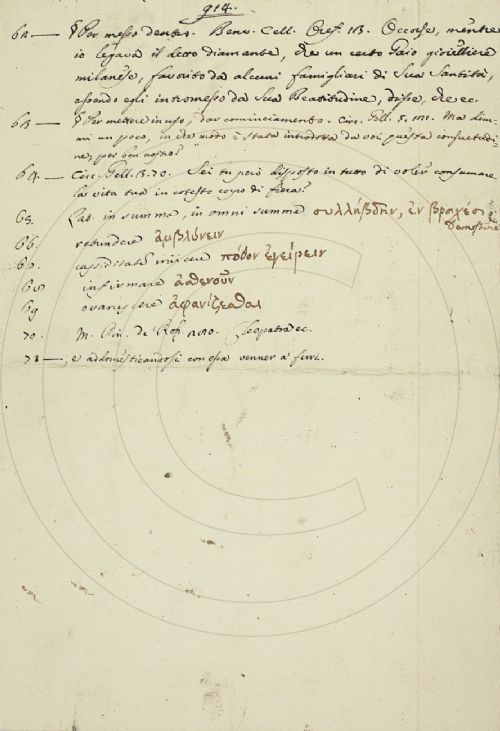 914.
62 — § Por messo dentro. Benv. Cell. Oref. 113. Occorse, mentre
io legava il detto diamante, che un certo Gaio gioielliere
milanese, favorito da alcuni famigliari di Sua Santità,
essendo egli intromesso da Sua Beatitudine, disse, che ec.
63 — § Per mettere in uso, dar cominciamento. Circ. Gell. Ma dim-
mi un poco, in che modo è stata introdotta da voi questa consuetudi-
ne, per ben nostro?
64. — Circ. Gell. 3. 70. Sei tu però disposto in tutto di voler consumare
la vita tua in cotesto corpo di fiera?
65. Lat. in summa, in omni summa συλλήβδην, ἐν βραχέσι
Demosthene
66. retundere ἀμβλύνειν
67. cupiditatem iniicere πόθον ἐγείρειν
68 infirmare ἀσθενοῦν
69 evanescere ἀφανίζεσθαι
70. M. Cleopatra ec.
71 —, e addomesticandosi con essa venner a